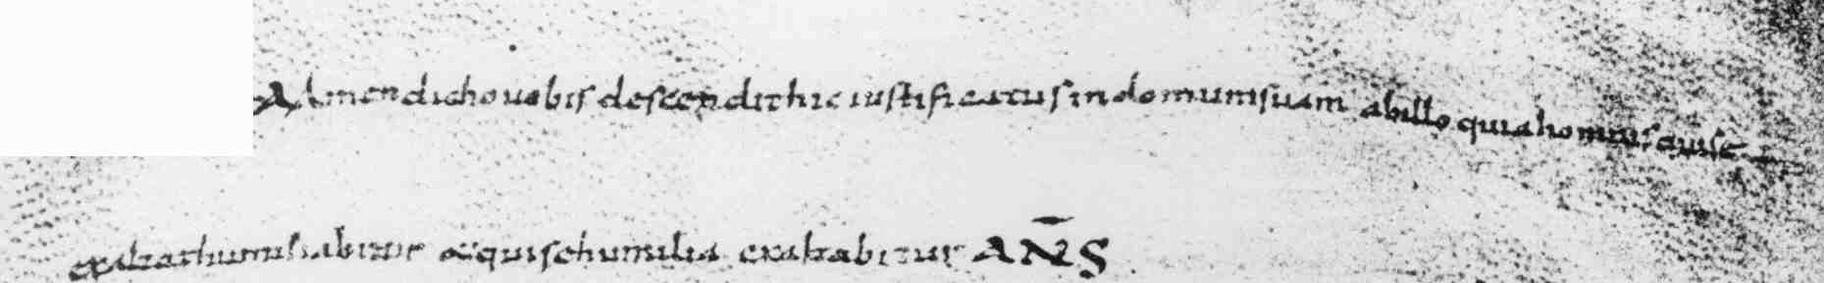 Amen dicho vobis descendit hic iustificatus in domum suam ab illo quia homnis qui se
exaltat humiliabitur & qui se humilia exaltabitur ANS